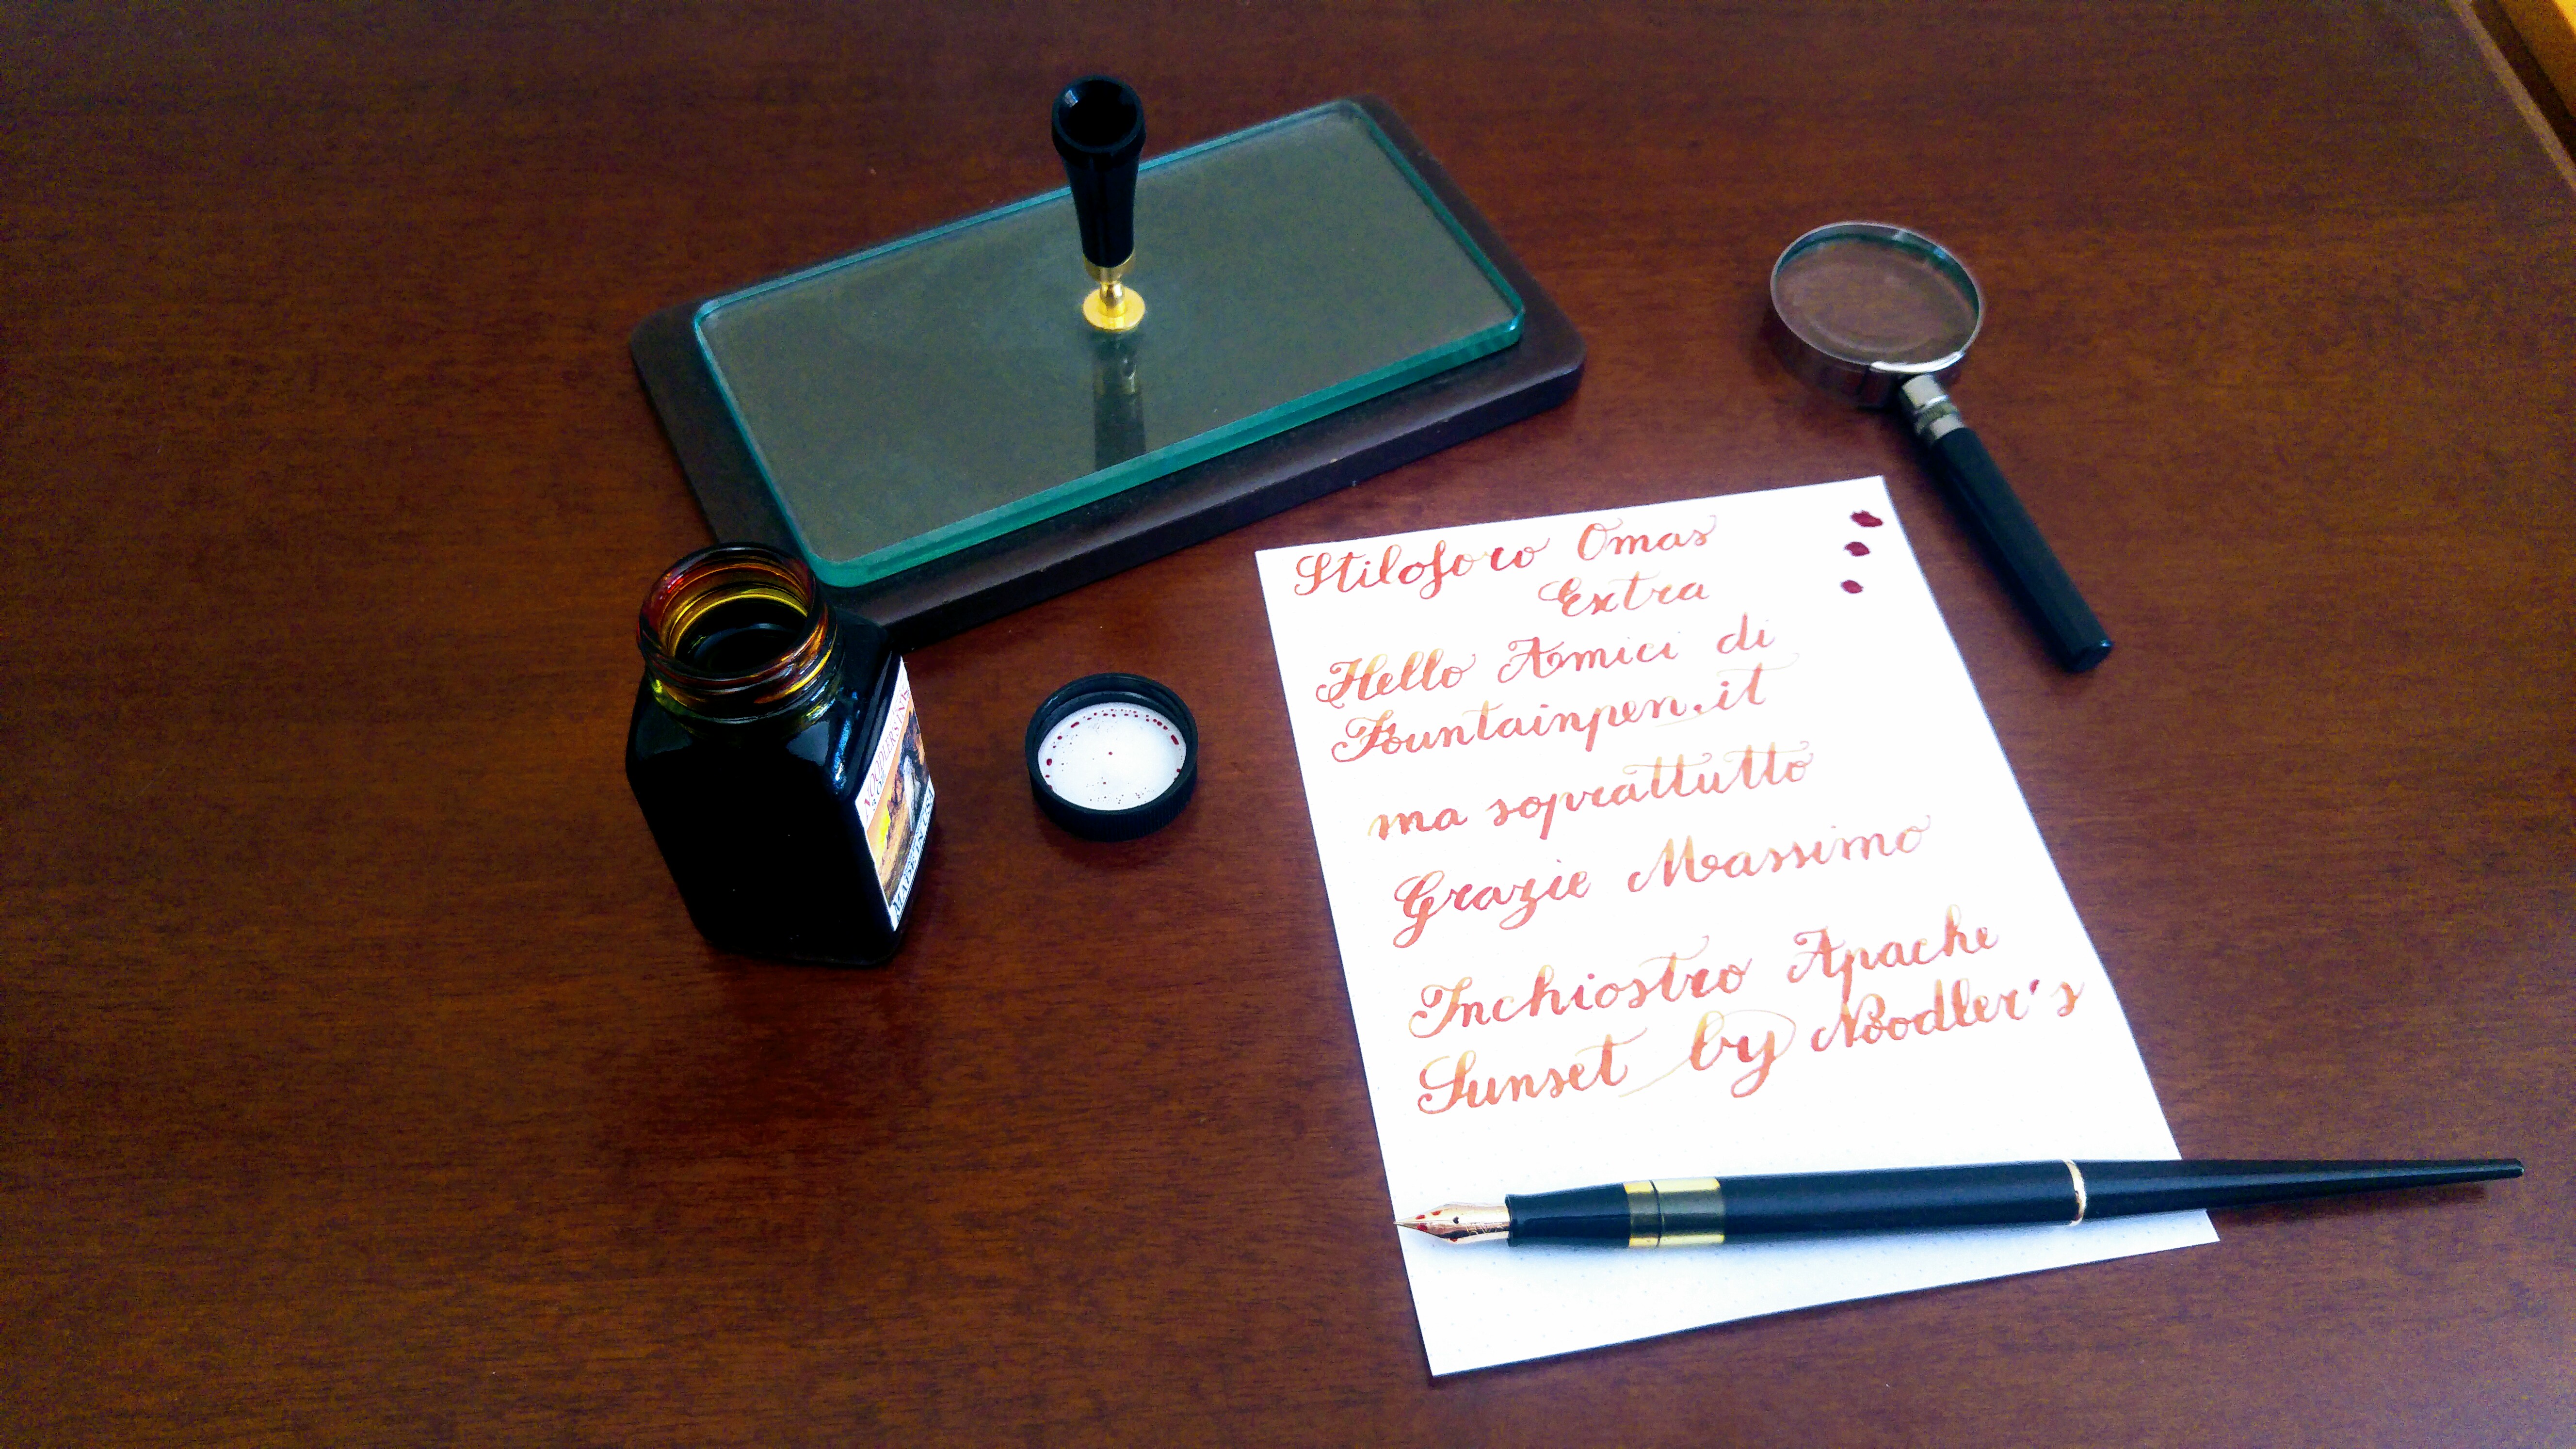 Stiloforo Omas
Extra
Hello Amici di
Fountainpen.it
ma soprattutto
Grazie Massimo
Inchiostro Apache
Sunset by Noodler's
NOODLER'S INK
MADE IN USA